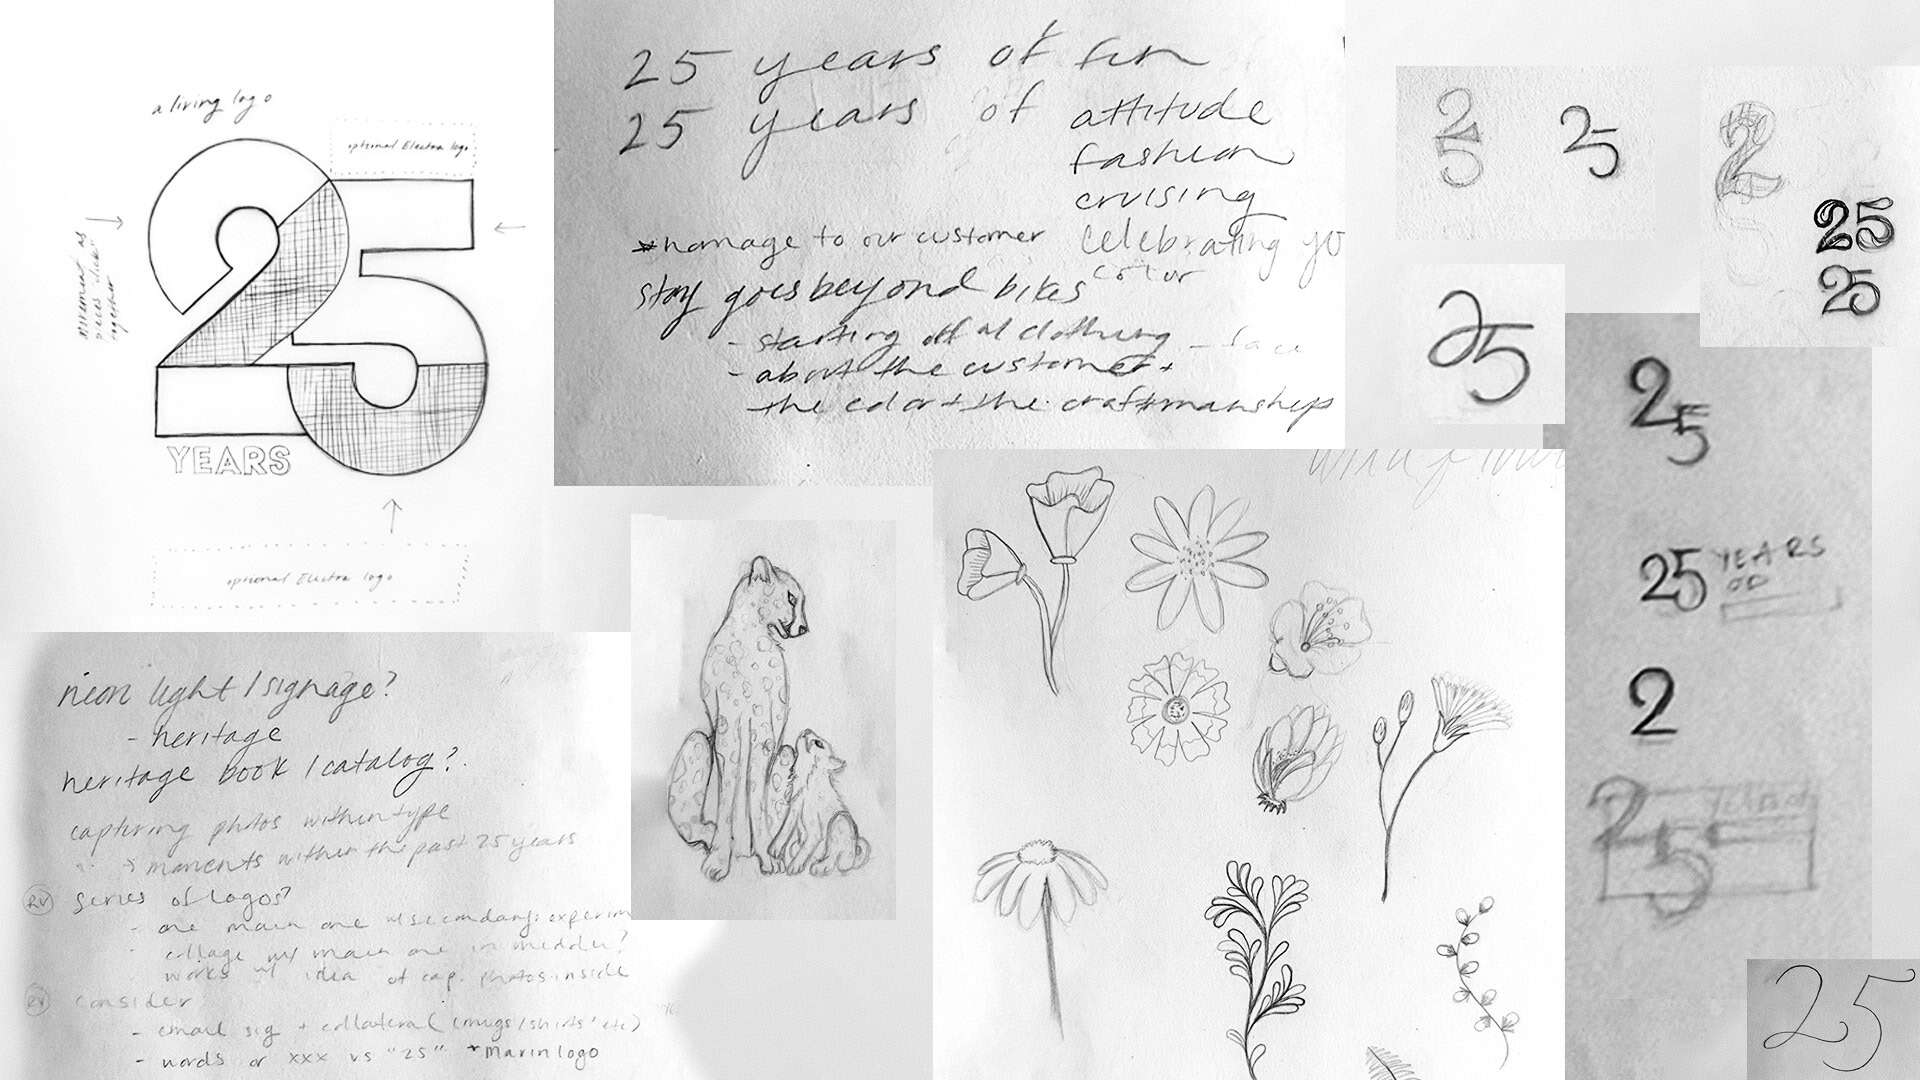 a living logo
optional Electra logo
25
YEARS
optional Electra logo
25 years of fun
25 years of attitude
fashion
cruising
*homage to our customer
celebrating yo
color
story goes beyond bikes
- starting off w/ clothing
- about the customer +
the color + the craftmanship
25
25
2
25
25
25
25
25 YEARS
OD
2
25
25
neon light / signage?
- heritage
heritage book / catalog?
capturing photos within type
* moments within the past 25 years
RV series of logos?
- one main one w/ secondary: experim
- collage w/ main one in middle?
works w/ idea of cap. photos inside
RV consider
- email sig + collateral (mugs/shirts etc)
- words or xxx vs "25" *Marin logo